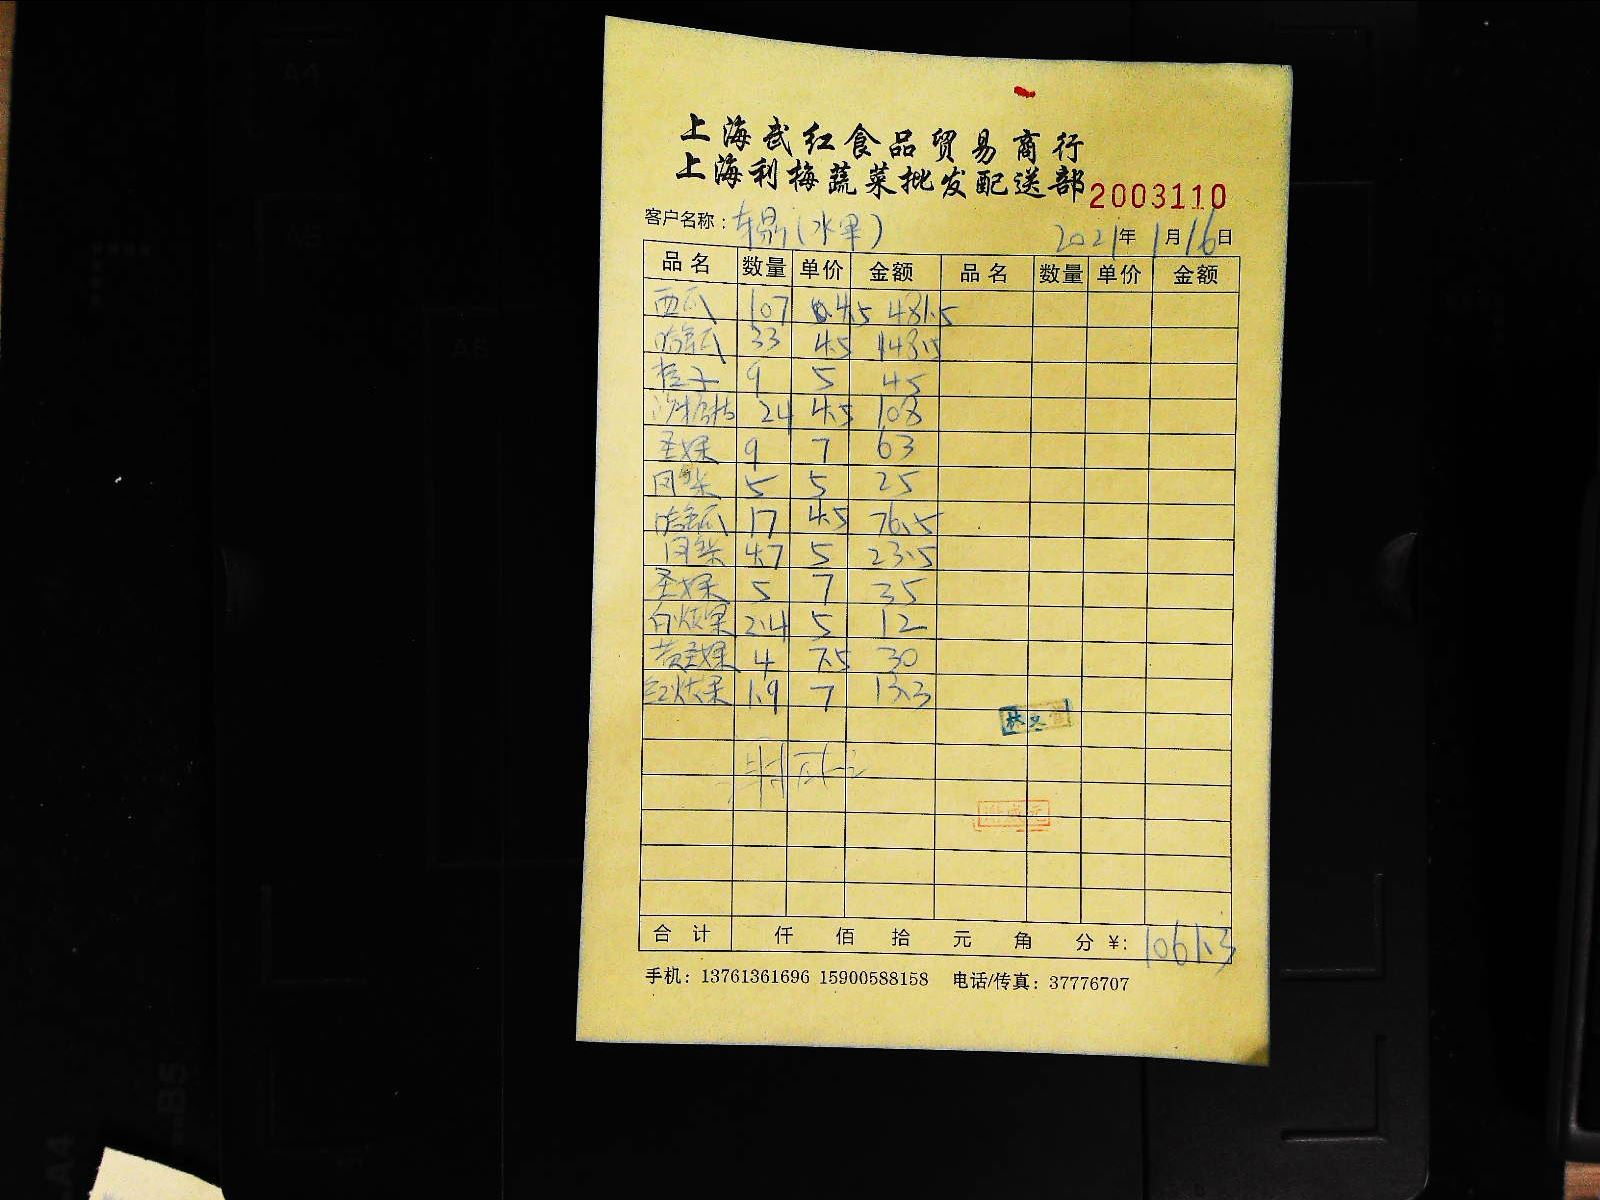 上海武红食品贸易商行
上海利梅蔬菜批发配送部 2003110
客户名称: 东鼎(水果) 2021年 1月16日
品名 数量 单价 金额 品名 数量 单价 金额
西瓜 107 4.5 481.5
哈密瓜 33 4.5 148.5
橙子 9 5 45
沙糖桔 24 4.5 108
圣女果 9 7 63
凤梨 5 5 25
哈密瓜 17 4.5 76.5
凤梨 4.7 5 23.5
圣女果 5 7 35
白火龙果 2.4 5 12
黄圣女果 4 7.5 30
红火龙果 1.9 7 13.3
合计 仟 佰 拾 元 角 分 ¥: 1061.3
手机: 13761361696 15900588158 电话/传真: 37776707
A4
A5
A6
B5
A4